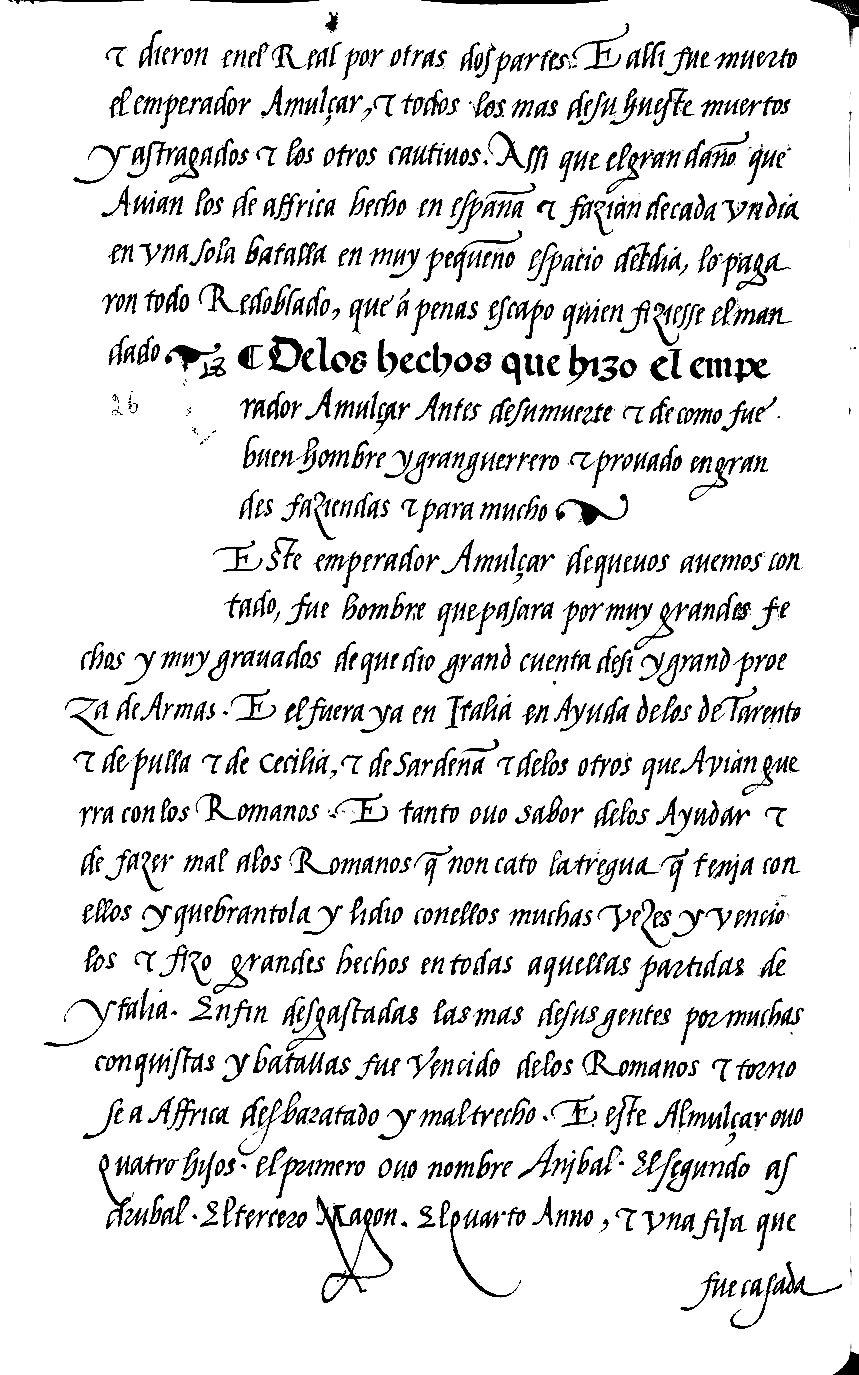 ⁊ dieron enel Real por otras dos partes. E alli fue muerto
el emperador Amulçar, ⁊ todos los mas desu hueste muertos
y astragados ⁊ los otros cautiuos. Assi que el gran daño que
Auian los de affrica hecho en españa ⁊ fazian decada vn dia
en vna sola batalla en muy pequeño espacio del dia, lo paga
ron todo Redoblado, que á penas escapo quien fiziesse el man
dado 18 ¶ Delos hechos que hizo el empe
26
rador Amulçar Antes desu muerte ⁊ de como fue
buen hombre y gran guerrero ⁊ prouado en gran
des faziendas ⁊ para mucho
Este emperador Amulçar de que uos auemos con
tado, fue hombre que pasara por muy grandes fe
chos y muy grauados de que dio grand cuenta desi y grand proe
za de Armas. E el fuera ya en Italia en Ayuda delos de Tarento
⁊ de pulla ⁊ de Cecilia, ⁊ de Sardeña ⁊ delos otros que Avian gue
rra con los Romanos. E tanto ouo sabor delos Ayudar ⁊
de fazer mal alos Romanos q̃ non cato la tregua q̃ tenja con
ellos y quebrantola y lidio con ellos muchas vezes y vencio
los ⁊ fizo grandes hechos en todas aquellas partidas de
ytalia. Enfin desgastadas las mas desus gentes por muchas
conquistas y batallas fue vencido delos Romanos ⁊ torno
se a Affrica desbaratado y mal trecho. E este Almulçar ouo
quatro hijos. el primero ouo nombre Anjbal. El segundo as
drubal. El tercero Magon. El quarto Anno, ⁊ vna fija que
fue casada